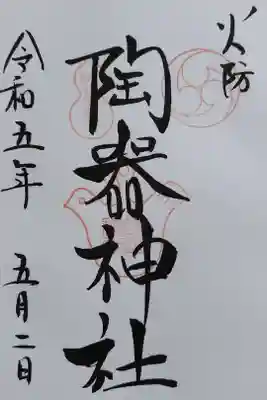 火防
陶器神社
令和五年 五月二日